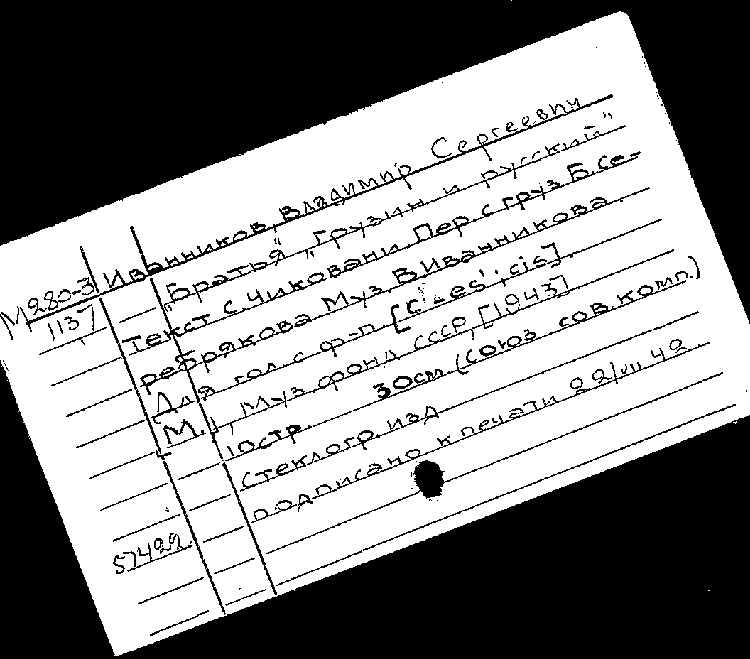 М280-3
1137
Иванников, Владимир Сергеевич
„Братья" „грузин и русский"
Текст С. Чиковани Пер. с груз Б. Се-
ребрякова Муз В. Иванникова.
Для гол с ф-п [c'-es²; cis].
[М.], Муз фонд СССР, [1943]
10стр. 30см (Союз сов. комп.)
Стеклогр. изд
подписано к печати 22/VII 42.
57422.